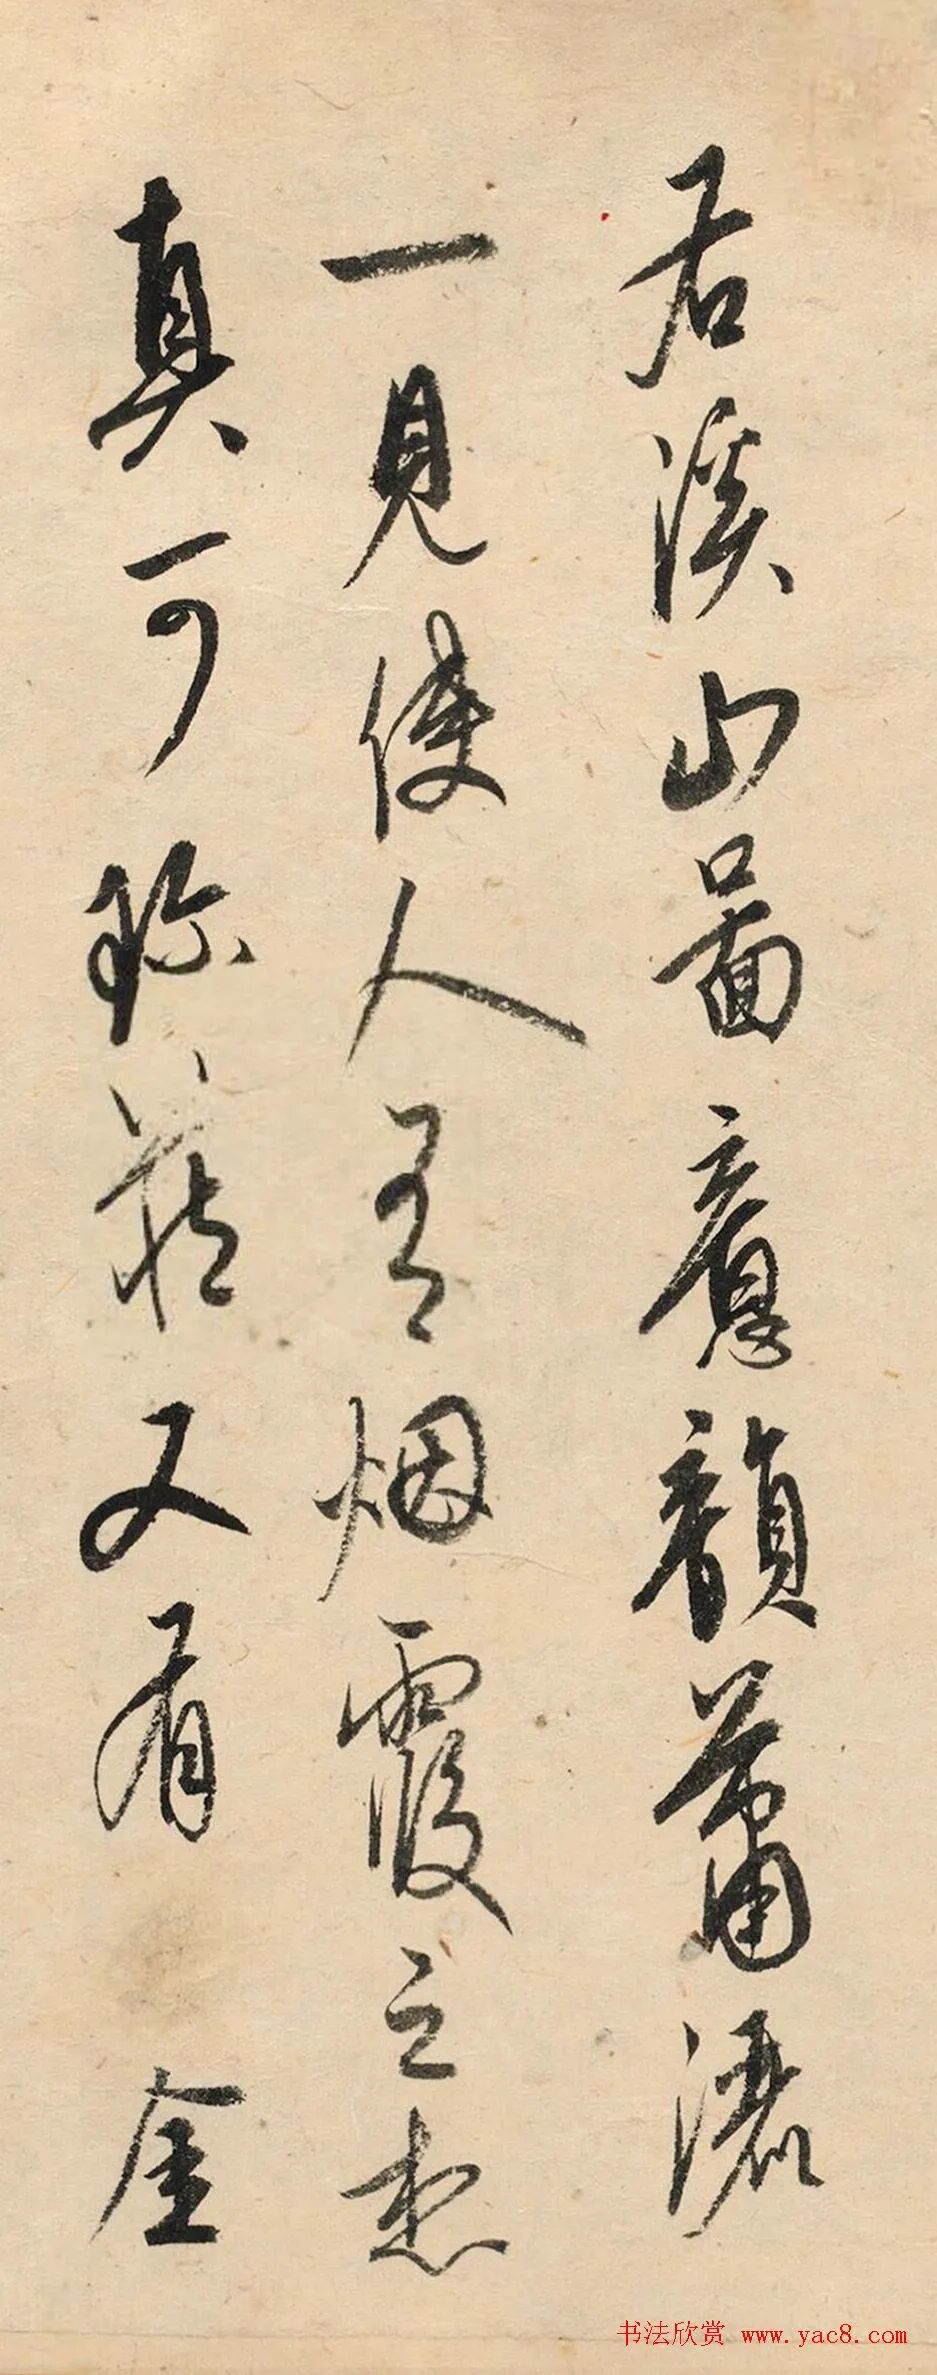 右溪山图意韻蕭灑
一見使人有烟霞之想
真可珍藏又有金
书法欣赏 www.yac8.com